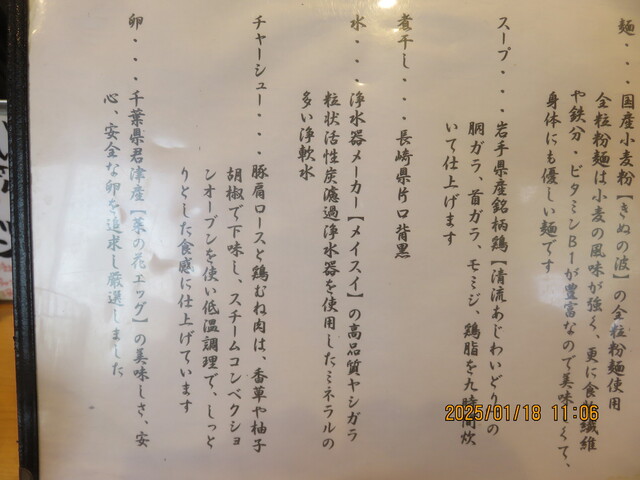 麺・・・国産小麦粉【きぬの波】の全粒粉麺使用
全粒粉麺は小麦の風味が強く、更に食物繊維
や鉄分・ビタミンB1が豊富なので美味しくて、
身体にも優しい麺です
スープ・・・岩手県産銘柄鶏【清流あじわいどり】の
胴ガラ、首ガラ、モミジ、鶏脂を九時間炊
いて仕上げます
煮干し・・・長崎県片口背黒
水・・・浄水器メーカー【メイスイ】の高品質ヤシガラ
粒状活性炭濾過浄水器を使用したミネラルの
多い浄軟水
チャーシュー・・・豚肩ロースと鶏むね肉は、香草や柚子
胡椒で下味し、スチームコンベクショ
ンオーブンを使い低温調理で、しっと
りとした食感に仕上げています
卵・・・千葉県君津産【菜の花エッグ】の美味しさ、安
心、安全な卵を追求し厳選しました
2025/01/18 11:06